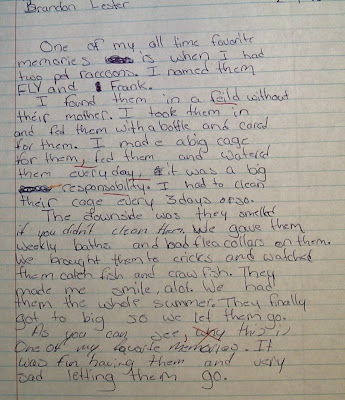 Brandon Lester
One of my all time favorite
memories is when I had
two pet raccoons. I named them
FLY and Frank.
I found them in a feild without
their mother. I took them in
and fed them with a bottle and cared
for them. I made a big cage
for them, fed them and watered
them everyday, it was a big
responsobility. I had to clean
their cage every 3 days or so.
The downside was they smelled
if you didn't clean them. We gave them
weekly baths and had flea collars on them.
We brought them to cricks and watched
them catch fish and craw fish. They
made me smile, alot. We had
them the whole summer. They finally
got to big so we let them go.
As you can see, why this is
One of my favorite memories. It
was fun having them and very
sad letting them go.